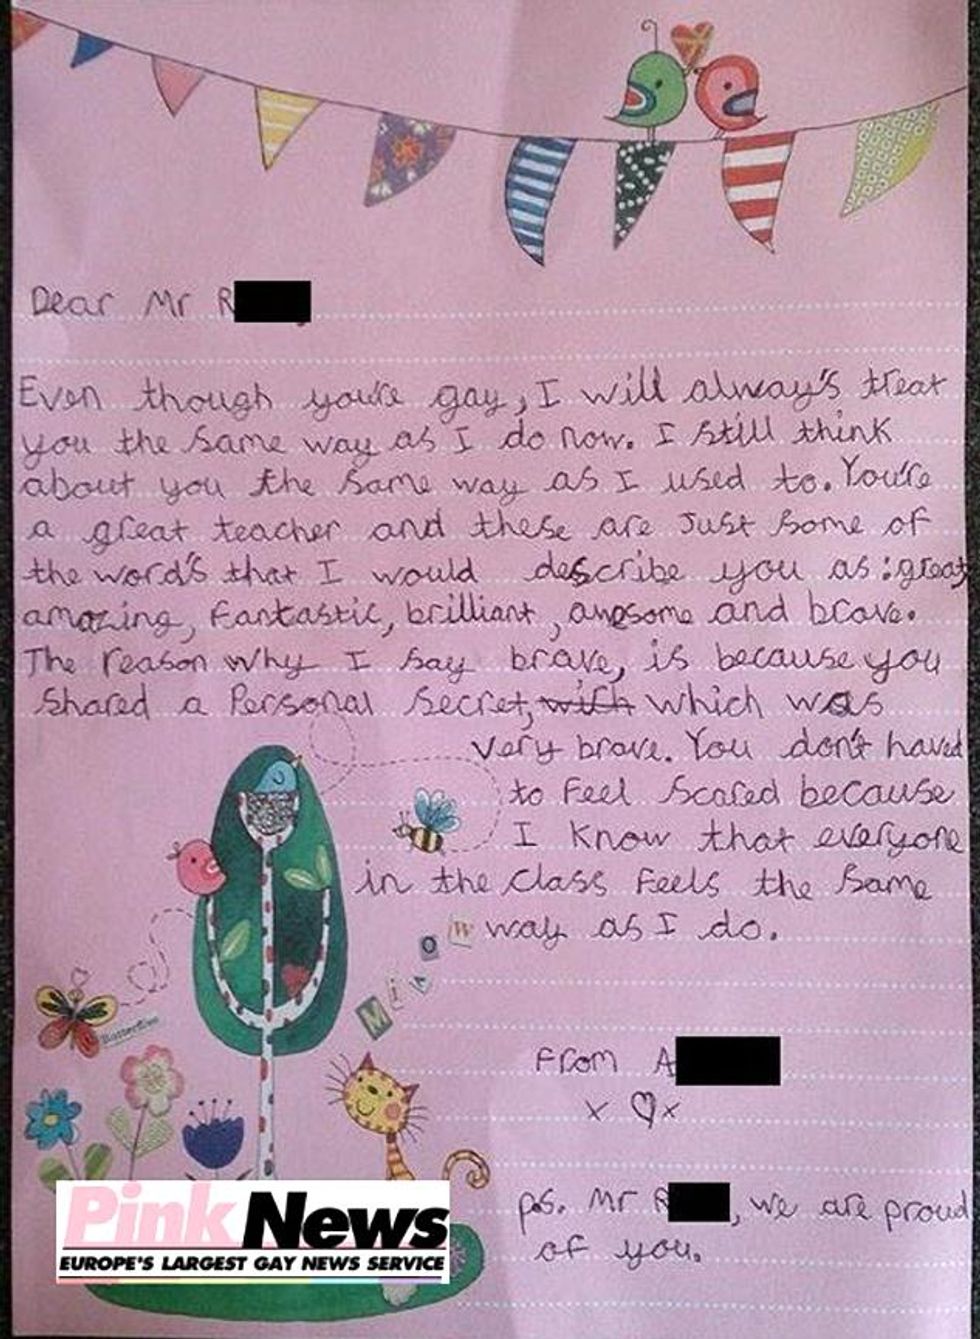 Dear Mr R
Even though you're gay, I will always's treat
you the same way as I do now. I still think
about you the same way as I used to. You're
a great teacher and these are just some of
the word's that I would describe you as: great
amazing, fantastic, brilliant, awesome and brave.
The reason why I say brave, is because you
shared a Personal secret, which was
very brave. You don't haved
to feel scared because
I know that everyone
in the class feels the same
way as I do.
Miaow
Butterflies
From A
x ♡ x
ps. Mr R , we are proud
of you.
PinkNews
EUROPE'S LARGEST GAY NEWS SERVICE